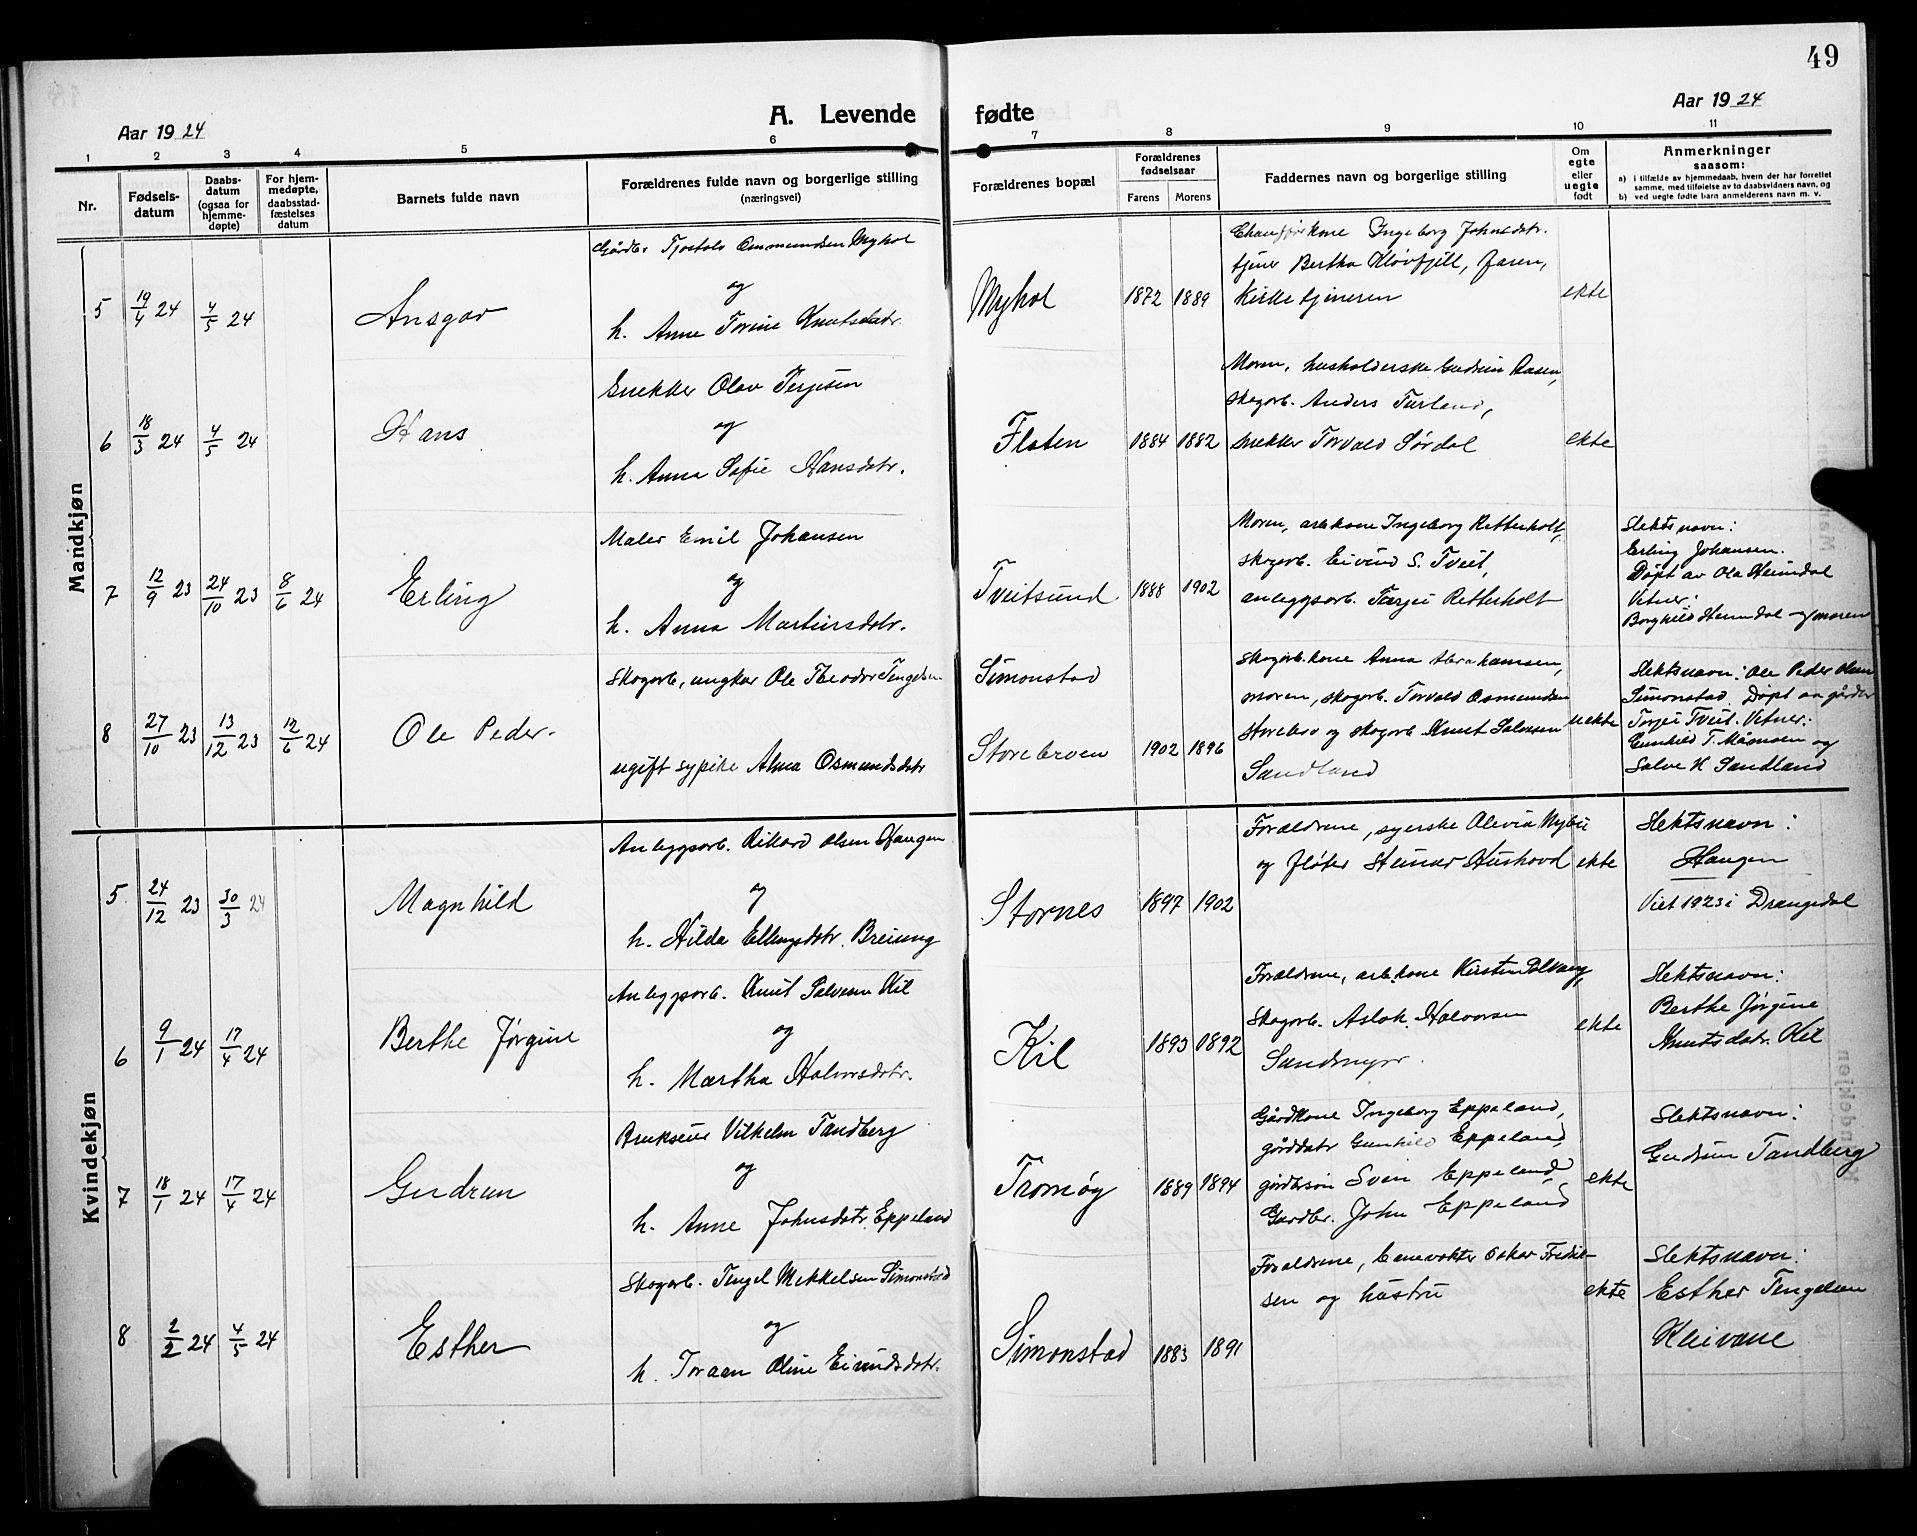 49
A. Levende fødte
Aar 1924
Aar 1924
1 2 3 4 5 6 7 8 9 10 11
Nr.
Fødsels-
datum
Daabs-
datum
(ogsaa for
hjemme-
døpte)
For hjem-
medøpte,
daabsstad-
fæstelses
datum
Barnets fulde navn
Forældrenes fulde navn og borgerlige stilling
(næringsvei)
Forældrenes bopæl
Forældrenes
fødselsaar
Farens Morens
Faddernes navn og borgerlige stilling
Om
egte
eller
uegte
født
Anmerkninger
saasom:
a) i tilfælde av hjemmedaab, hvem der har forrettet
samme, med tilføielse av to daabsvidners navn, og
b) ved uegte fødte barn anmelderens navn m. v.
Mandkjøn
5 19/4 24 4/5 24
Ansgar
Gårdbr. Tjostolv Ommundsen Myhol
og
h. Anne Torine Knutsdatr.
Myhol
1872 1889
Ingeborg Johnsdtr.
tjener Bertha Kløvfjell, faren,
Kirketjeneren
ekte
6 18/3 24 4/5 24
Hans
Snekker Olav Terjesen
og
h. Anna Sofie Hansdotr.
Floten
1884 1882
Moren, husholderske Gudrun Aasen,
skogarb. Anders Turland,
snekker Torvald Sørdal
ekte
7 12/9 23 24/10 23 8/6 24
Erling
Maler Emil Johansen
og
h. Anna Martinsdotr.
Tveitsund
1888 1902
Moren, arb.kone Ingeborg Retterholt,
skogarb. Eivind S. Tveit,
anleggsarb. Tarjei Retterholt
Slektsnavn:
Erling Johansen.
Døpt av Ola Heimdal
Vitner:
Borghild Heimdal og moren
8 27/10 23 13/12 23 12/6 24
Ole Peder.
Skogarb, ungkar Ole Theodor Tengelsen
ugift sypike Alma Osmundsdotr
Simonstad
Storebroen
1902 1896
Skogarb.kone Anna Abrahamsen,
moren, skogarb. Torvald Osmundsen
Storebro og skogarb Knut Salvesen
Sandland
uekte
Slektsnavn: Ole Peder Olsen
Simonstad. Døpt av gårdbr
Torjei Tveit. Vitner:
Gunhild T. og
Salve K Sandland
Kvindekjøn
5 24/12 23 30/3 24
Magnhild
Anleggsarb. Rikard Olsen Haugen
og
h. Hilda Ellingsdotr. Breiung
Stornes
1897 1902
Forældrene, syerske Olevia Nybu
og fløter Steinar Hushovd
ekte
Slektsnavn:
Haugen
Viet 1923 i Drangedal
6 9/1 24 17/4 24
Berthe Jørgine
Anleggsarb. Knut Salvesen Kil
og
h. Martha Halvorsdotr.
Kil
1893 1892
Forældrene, arb.kone Kirsten Solvang,
Skogarb. Aslak Halvorsen
Sandmyr.
ekte
Slektsnavn:
Berthe Jørgine
Knutsdotr. Kil
7 18/1 24 17/4 24
Gudrun
Brukseier Vilhelm Tandberg
og
h. Anne Johnsdotr. Eppeland
Tromøy
1889 1894
Gårdkone Ingeborg Eppeland,
gårddatr Gunhild Eppeland,
gårdersøn Sven Eppeland,
Gardbr. John Eppeland
ekte
Slektsnavn:
Gudrun Tandberg
8 2/2 24 4/5 24
Esther
Skogarb. Tengel Mikkelsen Simonstad
og
h. Toraan Oline Eivindsdotr.
Simonstad
1883 1891
Forældrene, banevokter Oskar Fredrik-
sen og hustru
ekte
Slektsnavn:
Esther Tengelsen
Kleivane